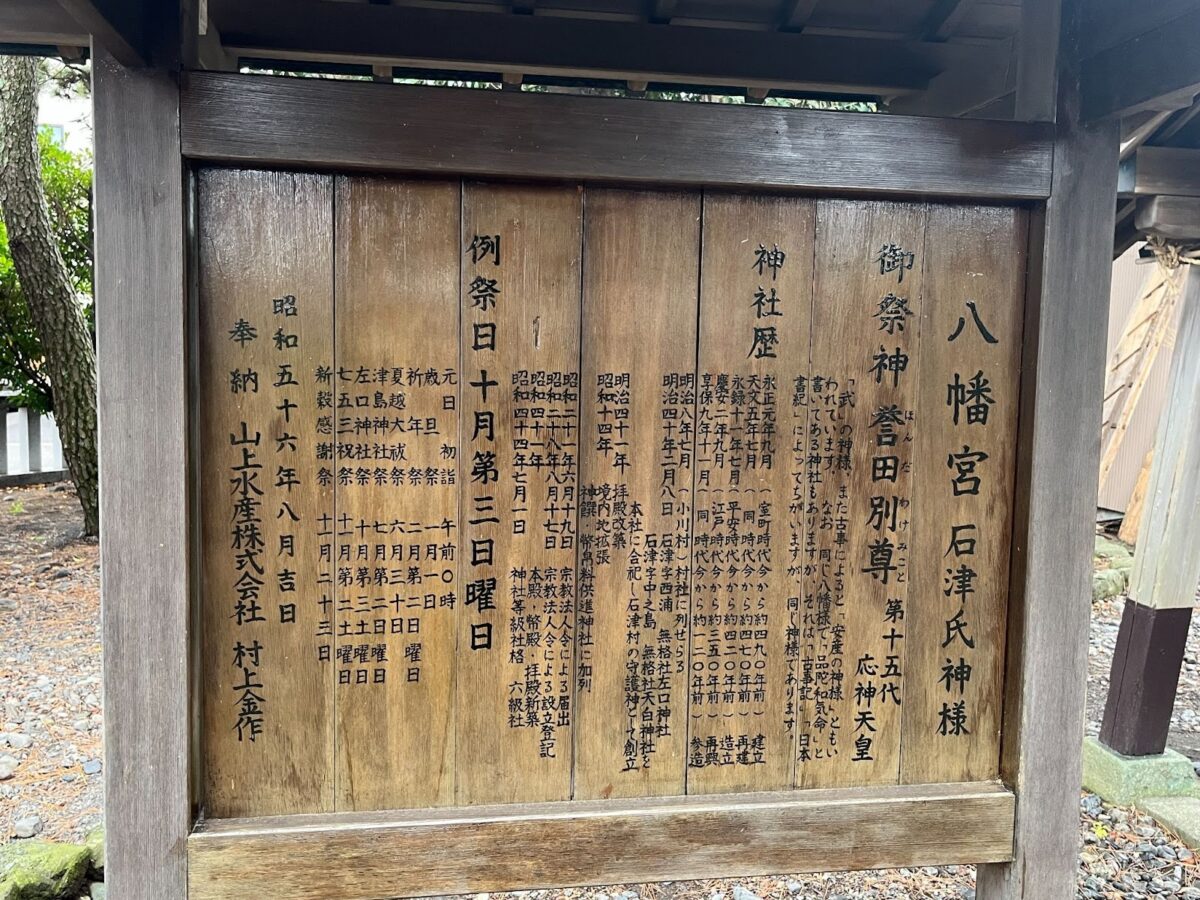 八幡宮石津氏神様
御祭神 誉田別尊 第十五代 応神天皇
ほんだわけみこと
「武」の神様、また古事によると「安産の神様」ともい
われています。なお、同じ八幡様で「品陀和気命」と
書いてある神社もありますが、それは「古事記」「日本
書紀」によってちがいますが、同じ神様であります。
神社歴
永正元年九月(室町時代今から約四九〇年前)建立
天文五年七月(同 時代今から約四七〇年前)再建
永録十一年七月(平安時代今から約四二〇年前)造立
慶安二年九月(江戸時代今から約三五〇年前)再興
享保九年十一月(同 時代今から約一二〇年前)参造
明治八年七月(小川村)村社に列せらる
明治四十年二月八日 石津字西浦 無格社左口神社
石津字中之島 無格社天白神社を
本社に合祀し石津村の守護神として創立
明治四十一年 拝殿改築
昭和十四年 境内地拡張
神饌・幣帛料供進神社に加列
昭和二十一年六月十九日 宗教法人令による届出
昭和二十八年八月十七日 宗教法人令による設立登記
昭和四十一年 本殿・幣殿・拝殿新築
昭和四十四年七月一日 神社等級社格 六級社
例祭日 十月第三日曜日
元日初詣 午前0時
歳旦祭 一月一日
祈年祭 二月第二日曜日
夏越大祓 六月三十日
津島神社祭 七月第二日曜日
左口神社祭 十月第三土曜日
七五三祝祭 十一月第二土曜日
新穀感謝祭 十一月二十三日
昭和五十六年八月吉日
奉納 山上水産株式会社 村上金作